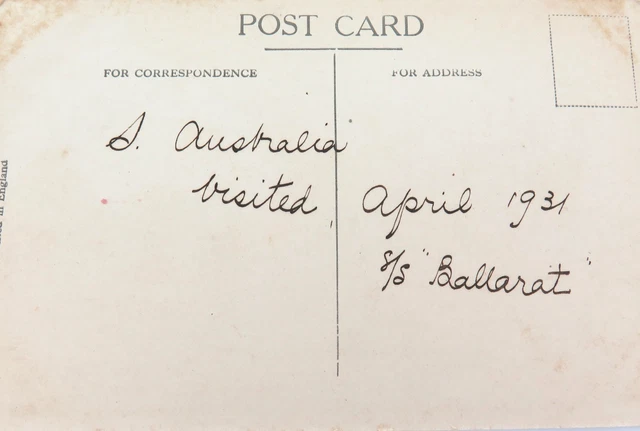 POST CARD
FOR CORRESPONDENCE
FOR ADDRESS
S. Australia
visited, April 1931
S/S "Ballarat"
in England